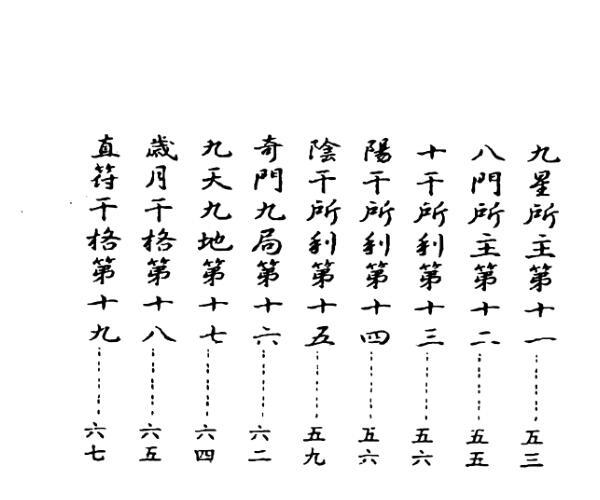 九星所主第十一……五三
八門所主第十二……五五
十干所利第十三……五六
陽干所利第十四……五六
陰干所利第十五……五九
奇門九局第十六……六二
九天九地第十七……六四
歲月干格第十八……六五
直符干格第十九……六七